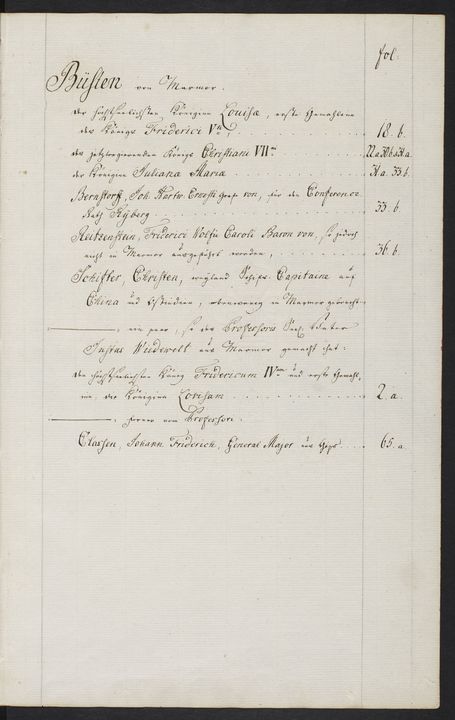 fol.
Büsten von Marmor.
der höchstseeligsten Königin Louisæ, erste Gemahlinn
des Königs Friderici Vti, 18 b.
des jetztregierenden Königs Christiani VII
der Königin Juliana Maria 31.a. 33.b.
Bernstorff, Joh. Hartw. Ernesti Graf von, für den Conferenz
Rath Ryberg 33. b.
Reitzenstein, Friderici Wolfii Caroli Baron von, so jedoch
nicht in Marmor ausgeführt worden, 36. b.
Schifter, Christen, weyland Schiffs-Capitaine auf
China und Ostindien, in Marmor gebracht
ein paar, so des Professoris Vater
Justus Wiedewelt aus Marmor gemacht hat:
den höchstseeligsten König Fridericum IVtum und erste Gemahl.
die Königin Lovisam 2. a.
ferner vom Professori.
Classen, Johann Friderich, General Major aus Gips 65. a.